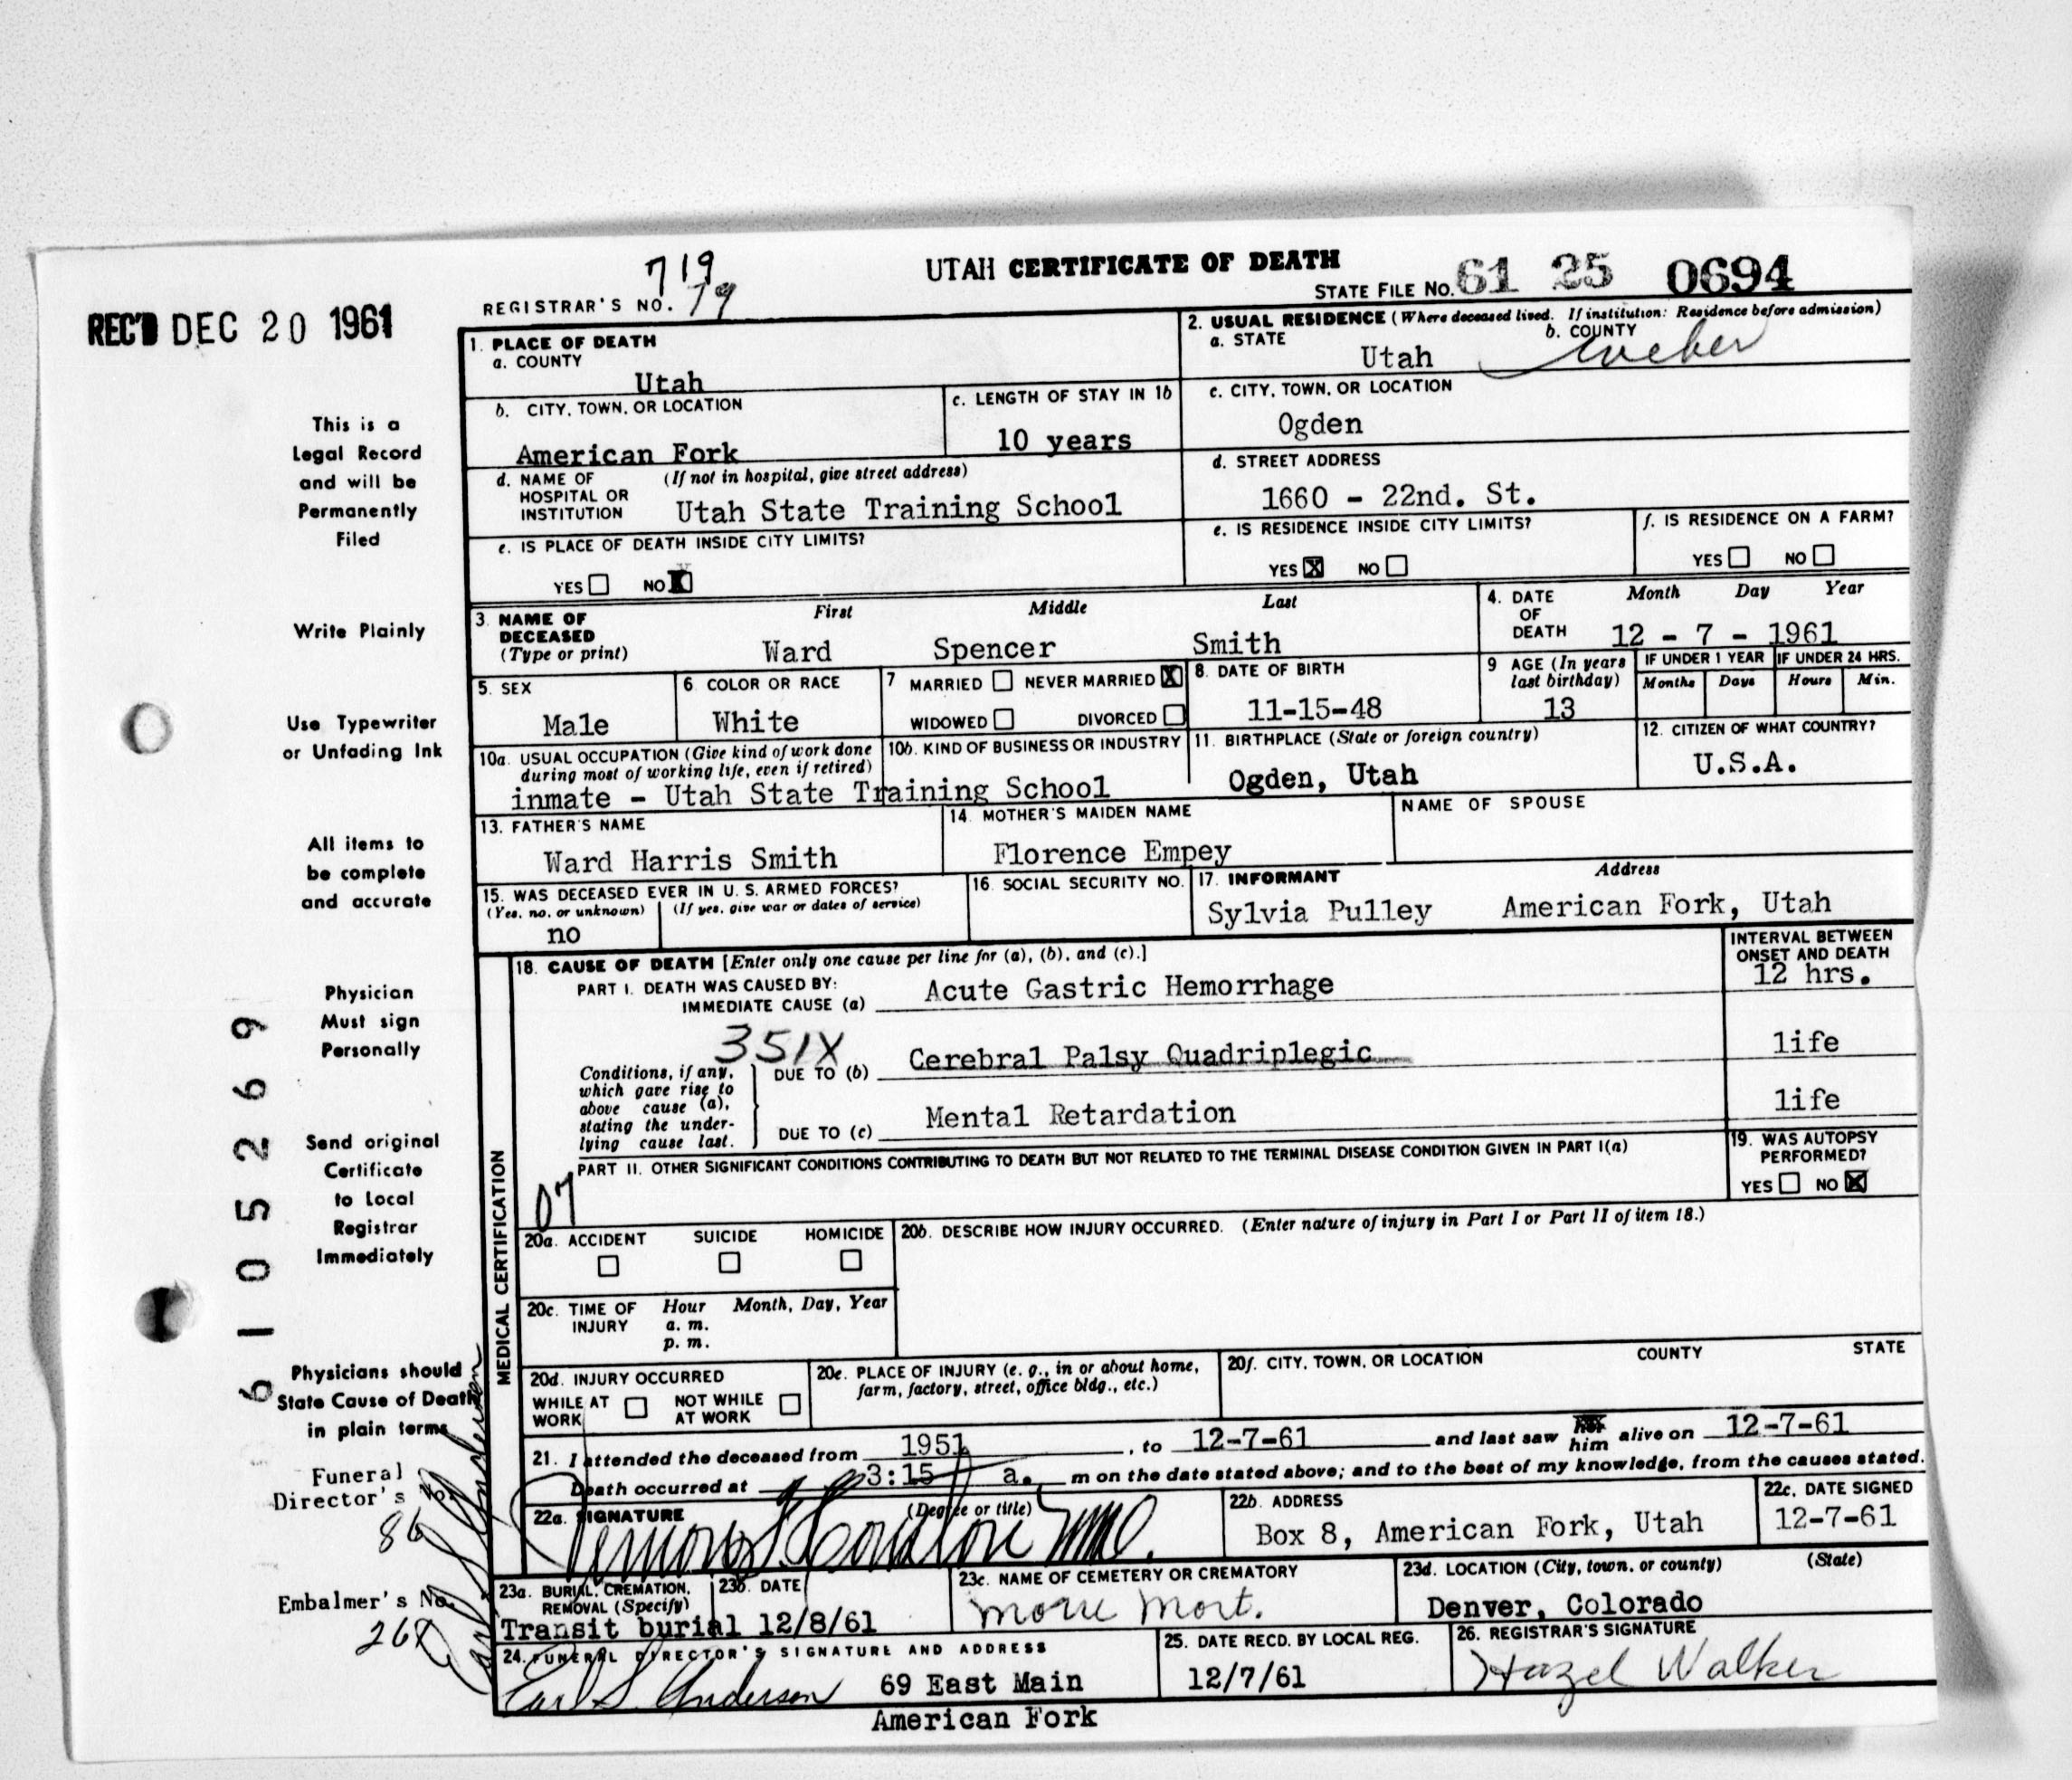 719
UTAH CERTIFICATE OF DEATH
REGISTRAR'S NO. 79
STATE FILE NO. 61 25 0694
REC'D DEC 20 1961
1. PLACE OF DEATH
a. COUNTY
Utah
2. USUAL RESIDENCE (Where deceased lived. If institution: Residence before admission)
a. STATE
Utah
b. COUNTY
Weber
b. CITY, TOWN, OR LOCATION
American Fork
c. LENGTH OF STAY IN 1b
10 years
c. CITY, TOWN, OR LOCATION
Ogden
d. NAME OF HOSPITAL OR INSTITUTION
(If not in hospital, give street address)
Utah State Training School
d. STREET ADDRESS
1660 - 22nd. St.
e. IS PLACE OF DEATH INSIDE CITY LIMITS?
YES NO X
e. IS RESIDENCE INSIDE CITY LIMITS?
YES X NO
f. IS RESIDENCE ON A FARM?
YES NO
3. NAME OF DECEASED
(Type or print)
First Middle Last
Ward Spencer Smith
4. DATE OF DEATH
Month Day Year
12 - 7 - 1961
5. SEX
Male
6. COLOR OR RACE
White
7 MARRIED NEVER MARRIED X
WIDOWED DIVORCED
8. DATE OF BIRTH
11-15-48
9 AGE (In years last birthday)
13
IF UNDER 1 YEAR
Months Days
IF UNDER 24 HRS.
Hours Min.
10a. USUAL OCCUPATION (Give kind of work done during most of working life, even if retired)
10b. KIND OF BUSINESS OR INDUSTRY
inmate - Utah State Training School
11. BIRTHPLACE (State or foreign country)
Ogden, Utah
12. CITIZEN OF WHAT COUNTRY?
U.S.A.
13. FATHER'S NAME
Ward Harris Smith
14. MOTHER'S MAIDEN NAME
Florence Empey
NAME OF SPOUSE
15. WAS DECEASED EVER IN U. S. ARMED FORCES?
(Yes, no, or unknown) (If yes, give war or dates of service)
no
16. SOCIAL SECURITY NO.
17. INFORMANT Address
Sylvia Pulley American Fork, Utah
MEDICAL CERTIFICATION
18. CAUSE OF DEATH [Enter only one cause per line for (a), (b), and (c).]
INTERVAL BETWEEN ONSET AND DEATH
PART I. DEATH WAS CAUSED BY:
IMMEDIATE CAUSE (a) Acute Gastric Hemorrhage 12 hrs.
351X
Conditions, if any, which gave rise to above cause (a), stating the underlying cause last.
DUE TO (b) Cerebral Palsy Quadriplegic life
DUE TO (c) Mental Retardation life
PART II. OTHER SIGNIFICANT CONDITIONS CONTRIBUTING TO DEATH BUT NOT RELATED TO THE TERMINAL DISEASE CONDITION GIVEN IN PART I(a)
07
19. WAS AUTOPSY PERFORMED?
YES NO X
20a. ACCIDENT SUICIDE HOMICIDE
20b. DESCRIBE HOW INJURY OCCURRED. (Enter nature of injury in Part I or Part II of item 18.)
20c. TIME OF INJURY
Hour Month, Day, Year
a. m.
p. m.
20d. INJURY OCCURRED
WHILE AT WORK
NOT WHILE AT WORK
20e. PLACE OF INJURY (e. g., in or about home, farm, factory, street, office bldg., etc.)
20f. CITY, TOWN, OR LOCATION COUNTY STATE
21. I attended the deceased from 1951, to 12-7-61 and last saw him alive on 12-7-61
Death occurred at 3:15 a. m on the date stated above; and to the best of my knowledge, from the causes stated.
22a. SIGNATURE (Degree or title)
22b. ADDRESS
Box 8, American Fork, Utah
22c. DATE SIGNED
12-7-61
23a. BURIAL, CREMATION, REMOVAL (Specify)
Transit burial
23b. DATE
12/8/61
23c. NAME OF CEMETERY OR CREMATORY
Mort.
23d. LOCATION (City, town, or county) (State)
Denver, Colorado
24. FUNERAL DIRECTOR'S SIGNATURE AND ADDRESS
Earl S. Anderson 69 East Main
American Fork
25. DATE RECD. BY LOCAL REG.
12/7/61
26. REGISTRAR'S SIGNATURE
Hazel Walker
This is a
Legal Record
and will be
Permanently
Filed
Write Plainly
Use Typewriter
or Unfading Ink
All items to
be complete
and accurate
Physician
Must sign
Personally
Send original
Certificate
to Local
Registrar
Immediately
Physicians should
State Cause of Death
in plain terms
Funeral
Director's No.
86
Embalmer's No.
6105269